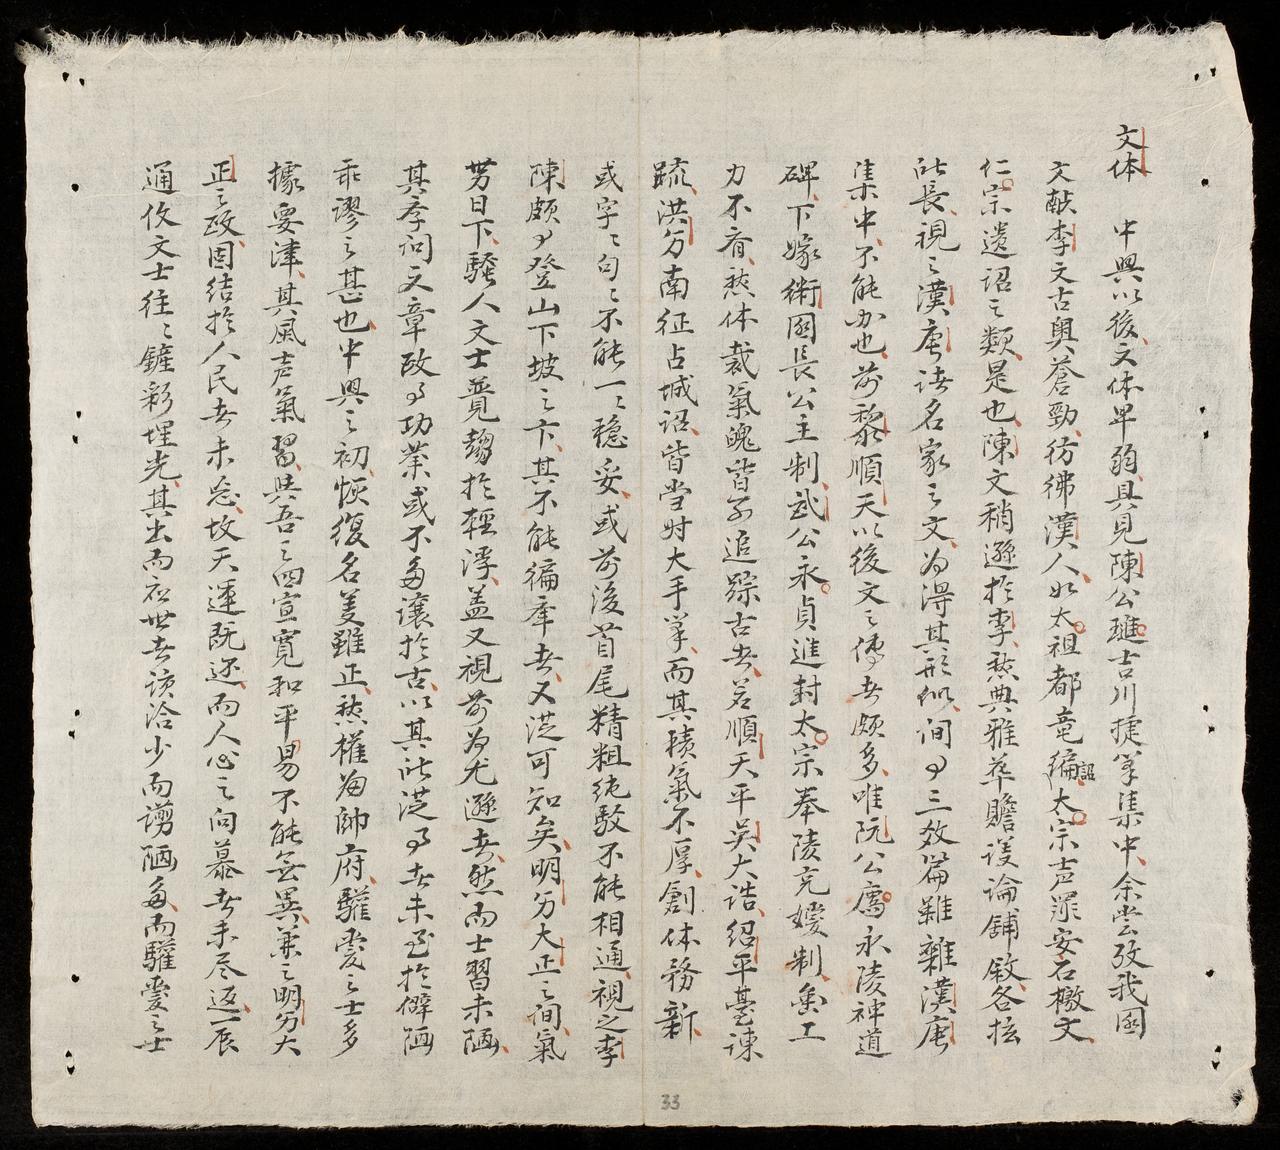 文体　中興以後文体卑弱具見陳公璡吉川捷筆集中余尝攷我國
文献李文古奥蒼勁彷彿漢人如太祖都竜編詔太宗声罪安石檄文
仁宗遺詔之類是也陳文稍遜於李然典雅華贍议論鋪敘各拡
所長視之漢唐諸名家之文為得其形似间有三数篇雖雜漢唐
集中不能办也前黎順天以後文之傳者頗多唯阮公廌永陵神道
碑下嫁衛國長公主制武公永貞進封太宗奉陵充嫒制亀工
力不斉然体裁氣魄皆可追踪古者若順天平吳大誥紹平臺諫
疏洪分南征占城詔皆当时大手筆而其積氣不厚創体務新
或字々句々不能一々穩妥或前後首尾精粗純駁不能相通視之李
陳頗有登山下坡之下其不能徧牽者又從可知矣明分大正之间氣
势日下騷人文士競騖於輕浮盖又視前为尤遜者然而士習未陋
其学问文章政事功業或不多讓於古以其所從事者未至於僻陋
乖謬之甚也中興之初恢復名義雖正然權为帥府驩爱之士多
據要津其風声氣習與吾之四宣寛和平易不能無異兼之明分大
正之政固結於人民者未忘故天運既还而人心之向慕者未尽返一辰
通攸文士往々鏟彩埋光其出而应世者该洽少而谫陋多而驩爱之士
33